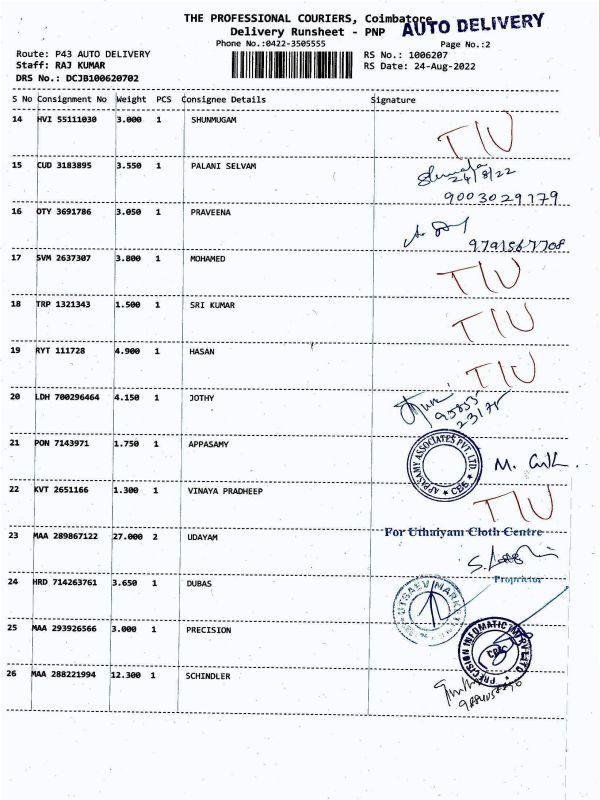 THE PROFESSIONAL COURIERS, Coimbatore
AUTO DELIVERY
Delivery Runsheet - PNP
Phone No.:0422-3505555
Page No.:2
Route: P43 AUTO DELIVERY
RS No.: 1006207
Staff: RAJ KUMAR
RS Date: 24-Aug-2022
DRS No.: DCJB100620702
S No Consignment No Weight PCS Consignee Details Signature
14 HVI 55111030 3.000 1 SHUNMUGAM
TIU
15 CUD 3183895 3.550 1 PALANI SELVAM
24/8/22
9003029179
16 OTY 3691786 3.050 1 PRAVEENA
9791567708
17 SVM 2637307 3.800 1 MOHAMED
TIU
18 TRP 1321343 1.500 1 SRI KUMAR
TIU
19 RYT 111728 4.900 1 HASAN
TIU
20 LDH 700296464 4.150 1 JOTHY
21 PON 7143971 1.750 1 APPASAMY
APPASAMY ASSOCIATES PVT. LTD. CBE
22 KVT 2651166 1.300 1 VINAYA PRADHEEP
TIU
23 MAA 289867122 27.000 2 UDAYAM
For Uthaiyam Cloth Centre
Proprietor
24 HRD 714263761 3.650 1 DUBAS
25 MAA 293926566 3.000 1 PRECISION
26 MAA 288221994 12.300 1 SCHINDLER